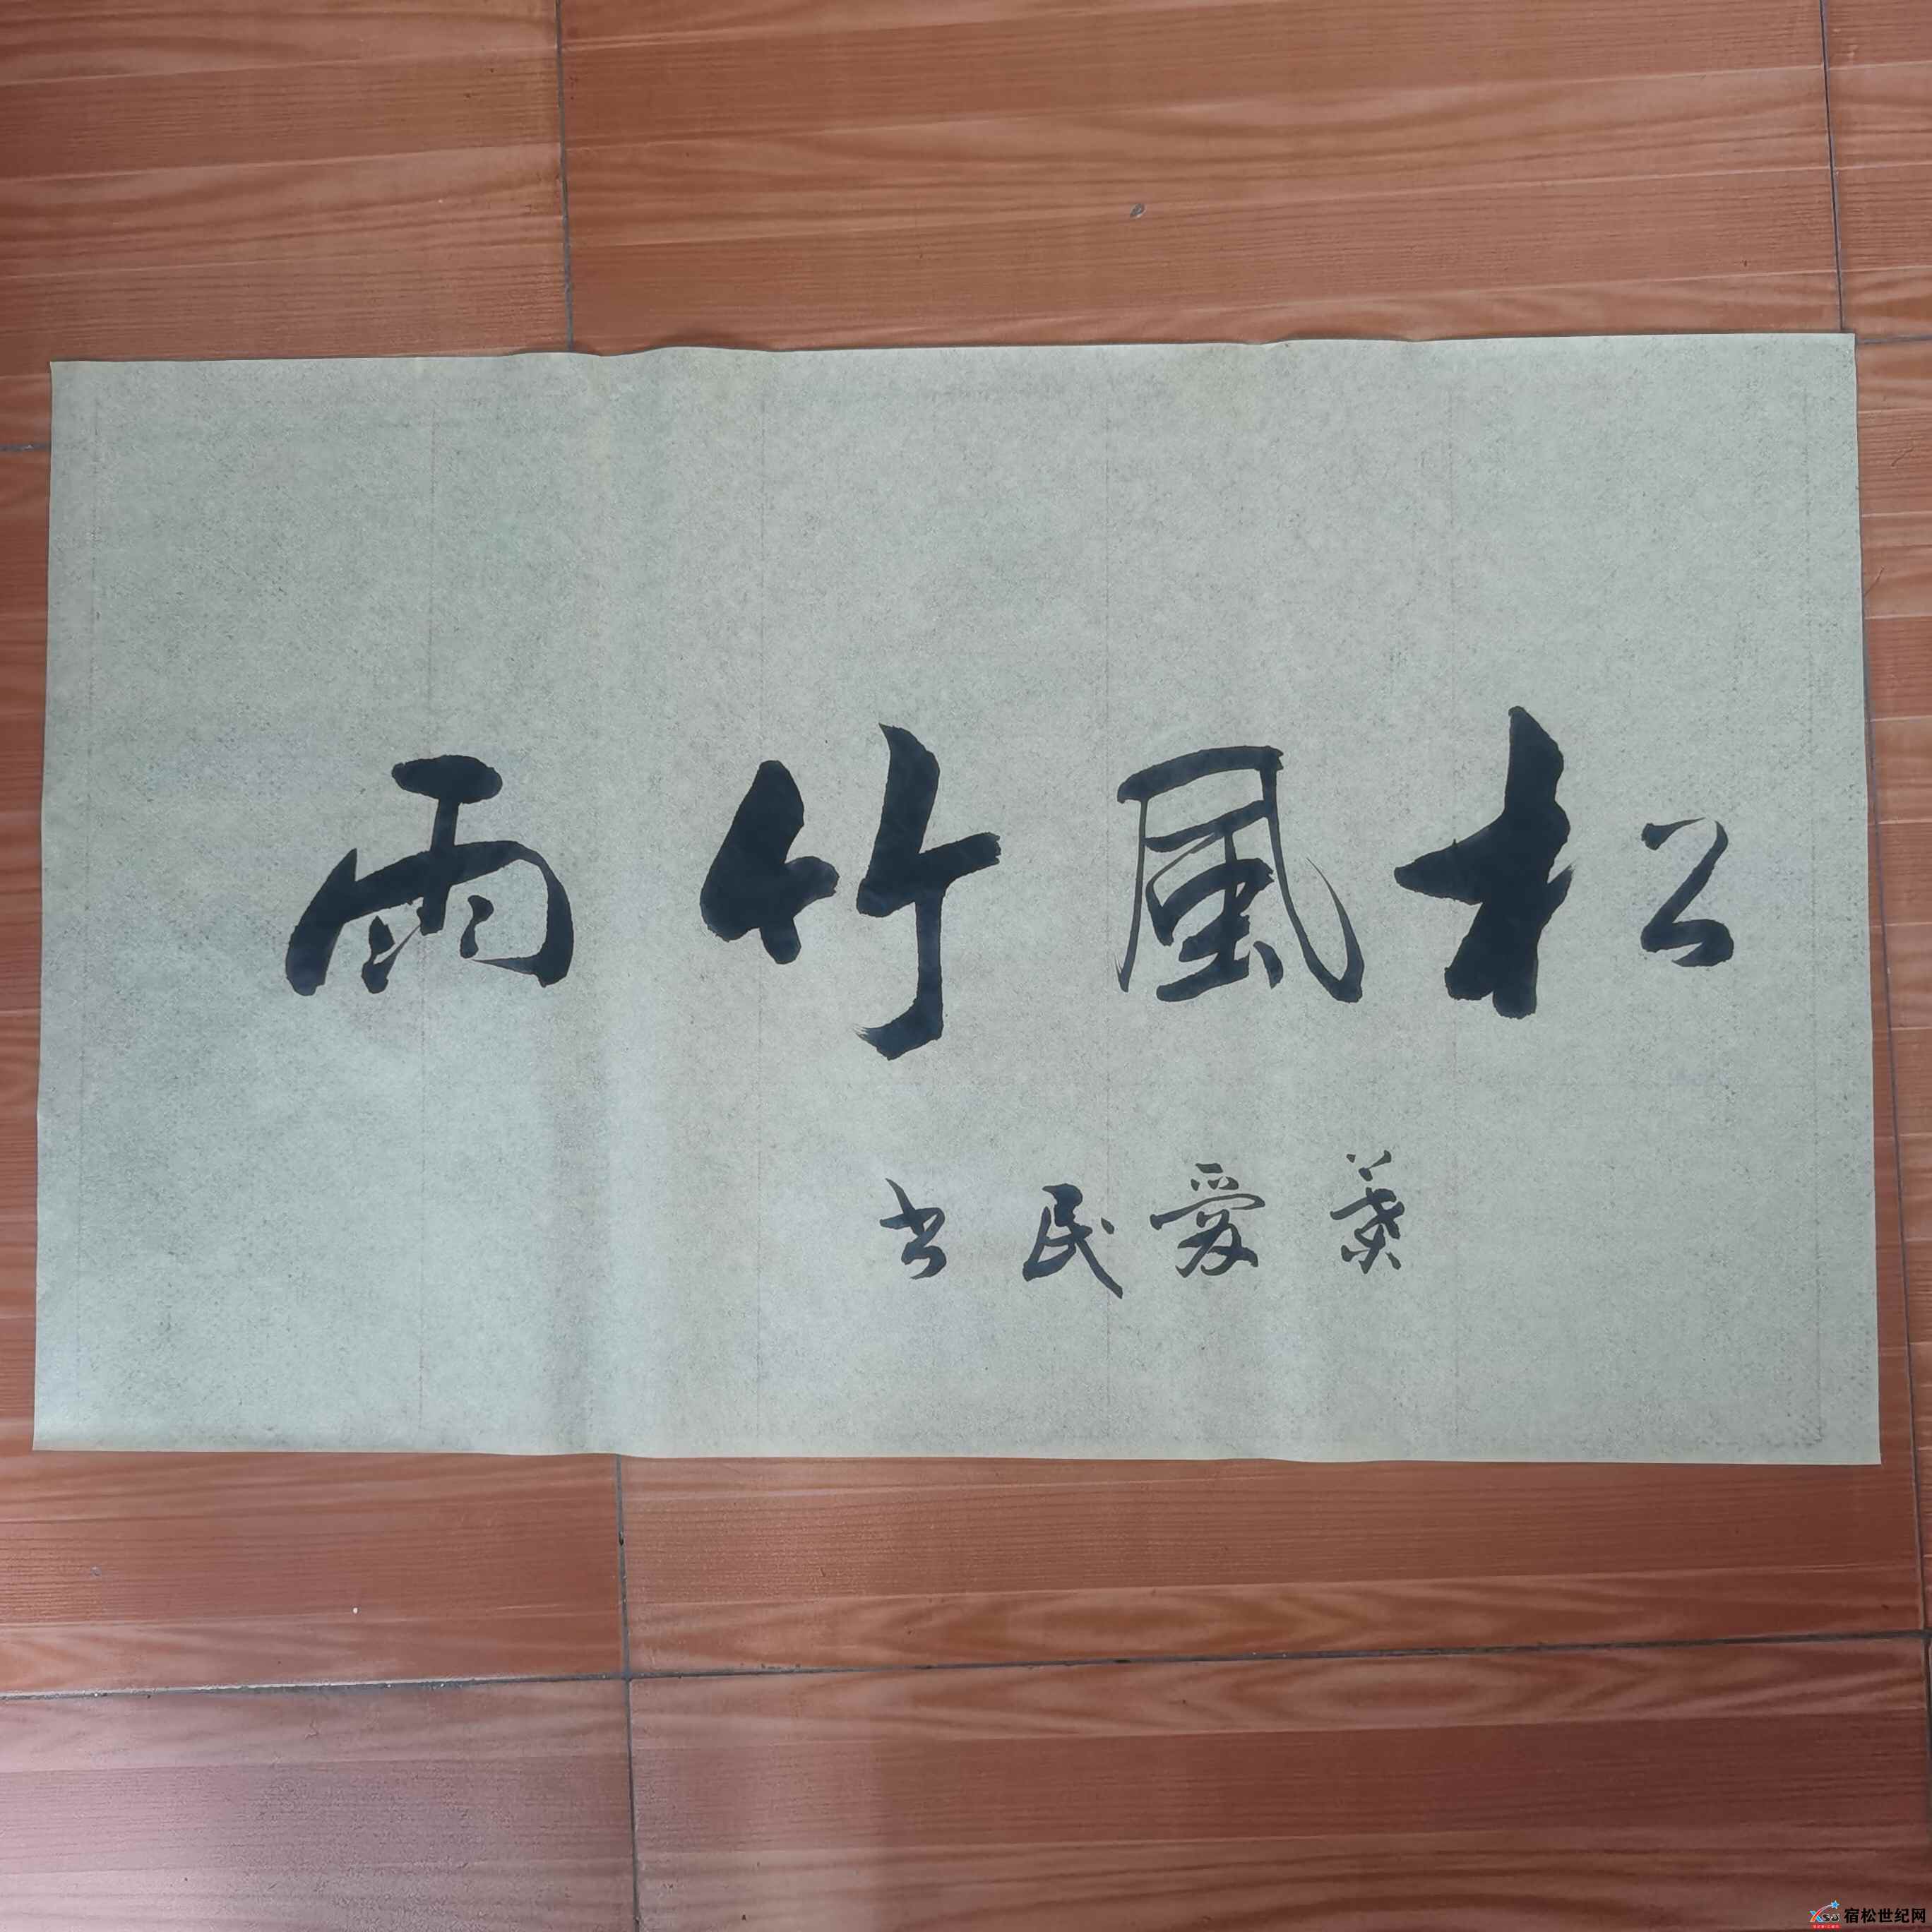 松風竹雨
葉愛民书
宿松世纪网